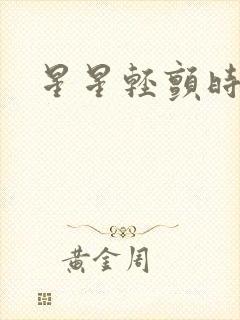 星星輕顫時
黃金周